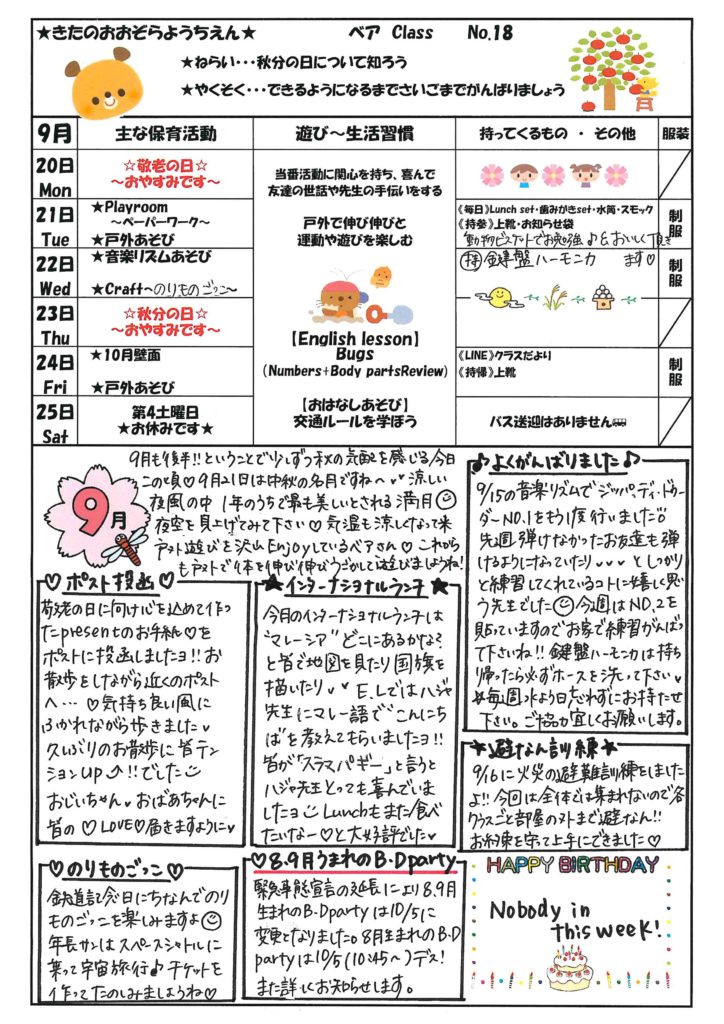 ★きたのおおぞらようちえん★ ベア Class No.18
★ねらい・・・秋分の日について知ろう
★やくそく・・・できるようになるまでさいごまでがんばりましょう
9月 主な保育活動 遊び～生活習慣 持ってくるもの ・ その他 服装
20日 Mon
☆敬老の日☆
～おやすみです～
21日 Tue
★Playroom
～ペーパーワーク～
★戸外あそび
22日 Wed
★音楽リズムあそび
★Craft～のりものごっこ～
23日 Thu
☆秋分の日☆
～おやすみです～
24日 Fri
★10月壁面
★戸外あそび
25日 Sat
第4土曜日
★お休みです★
当番活動に関心を持ち、喜んで
友達の世話や先生の手伝いをする
戸外で伸び伸びと
運動や遊びを楽しむ
【English lesson】
Bugs
(Numbers+Body partsReview)
【おはなしあそび】
交通ルールを学ぼう
《毎日》Lunch set・歯みがきset・水筒・スモック
《持参》上靴・お知らせ袋
動物ビスケットでお勉強♪&おいしく頂き
ます♡
鍵盤ハーモニカ
《LINE》クラスだより
《持帰》上靴
バス送迎はありません
制服
制服
制服
9月
9月も後半!!ということで少しずつ秋の気配を感じる今日
この頃♡9月21日は中秋の名月ですね〜 涼しい
夜風の中 1年のうちで最も美しいとされる満月
夜空を見上げてみて下さい♡気温も涼しくなって来
アスト遊びを沢山Enjoyしているベアさん♡これから
もアストで体を伸び伸びうごかして遊びましょうね!
♪よくがんばりました♪
9/15の音楽リズムでジッパ・ディ・ドゥー
ダーNO.1をもう1度行いました
先週弾けなかったお友達も弾
けるようになっていたり としっかり
と練習してくれているコトに嬉しく思
う先生でした 今週はNO.2を
貼っていますのでお家で練習がんばっ
て下さいね!!鍵盤ハーモニカは持ち
帰ったら必ずホースを洗って下さい
毎週水よう日忘れずにお持たせ
下さい。ご協力宜しくお願いします。
♡ポスト投函♡
敬老の日に向け心を込めて作っ
たpresentのお手紙♡を
ポストに投函しましたヨ!!お
散歩をしながら近くのポスト
へ…♡気持ち良い風に
ふかれながら歩きました
久しぶりのお散歩に皆テン
ションUP!!でした
おじいちゃん おばあちゃんに
皆の♡LOVE♡届きますように
★インターナショナルランチ★
今月のインターナショナルランチは
"マレーシア" どこにあるかな?
と皆で地図を見たり国旗を
描いたり E.Lではハジャ
先生にマレー語で"こんにち
は"を教えてもらいましたヨ!!
皆が「スラマパギー」と言うと
ハジャ先生とっても喜んでいま
したヨ Lunchもまた食べ
たいなー♡と大好評でした
★避なん訓練★
9/16に火災の避難訓練をしました
よ!!今回は全体では集まれないので各
クラスごと部屋の外まで避なん!!
お約束を守って上手にできました♡
♡のりものごっこ♡
鉄道記念日にちなんでのり
ものごっこを楽しみますよ
年長サンはスペースシャトルに
乗って宇宙旅行♪チケットを
作ってたのしみましょうね♡
♡8.9月うまれのB・Dparty
緊急事態宣言の延長により8.9月
生まれのB・Dpartyは10/5に
変更となりました。8月生まれのB・D
partyは10/5(10:45〜)デス!
また詳しくお知らせします。
HAPPY BIRTHDAY
Nobody in
this week!